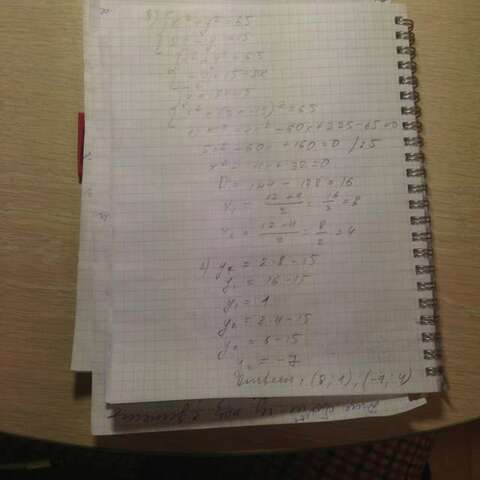 x² + y² = 65
2x - y = 15
x² + y² = 65
- y = 15 - 2x
y = 2x - 15
x² + (2x - 15)² = 65
x² + 4x² - 60x + 225 - 65 = 0
5x² - 60x + 160 = 0 /:5
x² - 12x + 32 = 0
D = 144 - 128 = 16
x₁ = (12+4)/2 = 16/2 = 8
x₂ = (12-4)/2 = 8/2 = 4
2) y₁ = 2·8 - 15
y₁ = 16 - 15
y₁ = 1
y₂ = 2·4 - 15
y₂ = 8 - 15
y₂ = -7
Ответ: (8; 1), (-7; 4)